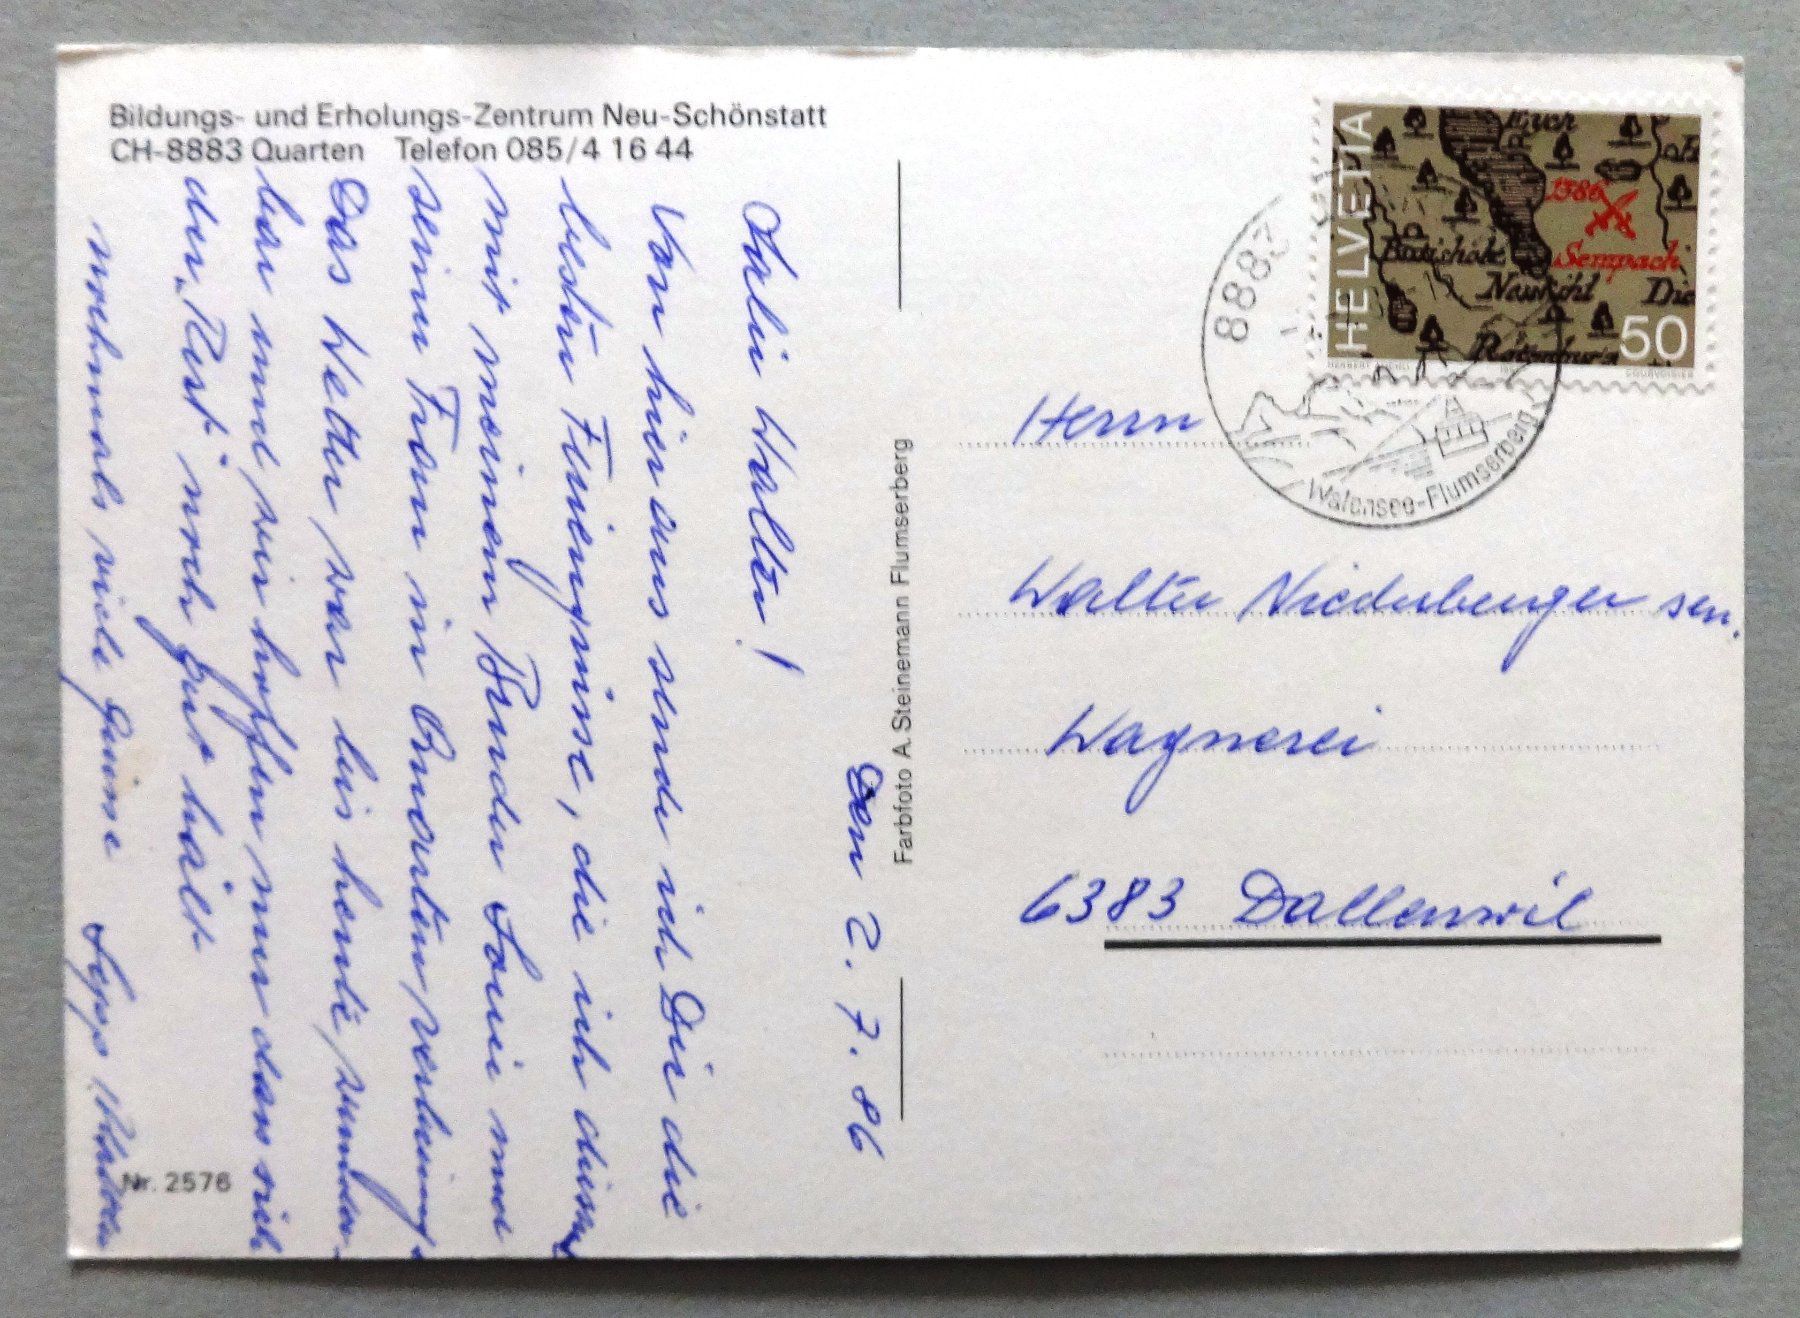 Bildungs- und Erholungs-Zentrum Neu-Schönstatt
CH-8883 Quarten Telefon 085/4 16 44
Den 2. 7. 86
Sali Walter!
Von hier aus sende ich Dir die
besten Feriengrüsse, die ich diesmal
mit meinem Bruder Loui und
seiner Frau in Quarten verbring.
Das Wetter war bis heute wunder-
bar und wir hoffen nur dass sich
der „Rest" noch gut hält.
nochmals viele Grüsse Sepp
Nr. 2576
Farbfoto A. Steinemann Flumserberg
HELVETIA
1386
Sempach
Die
50
8883
Walensee-Flumserberg
Herrn
Walter Niederberger sen.
Wagnerei
6383 Dallenwil